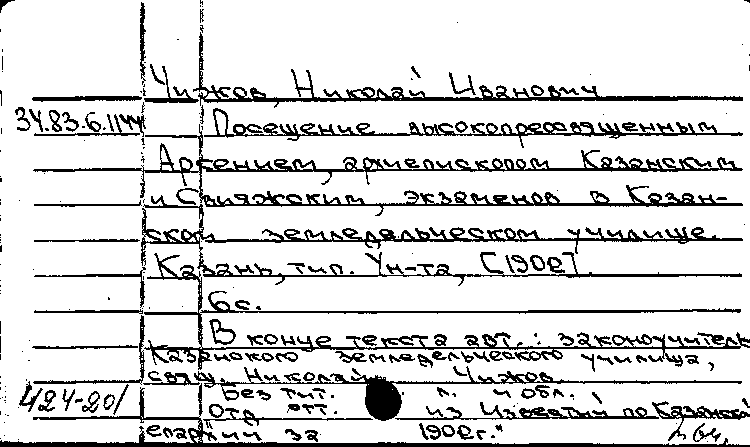 Чижов, Николай Иванович
34.83.6.1144 Посещение высокопреосвященным
Арсением, архиепископом Казанским
и Свияжским, экзаменов в Казан-
ском земледельческом училище.
Казань, тип. Ун-та, [1902].
6 с.
В конце текста авт.: законоучитель
Казанского земледельческого училища,
свящ. Николай Чижов.
Без тит. л. и обл.
424-20/ Отд. отт. из Известий по Казанской
епархии за 1902 г."